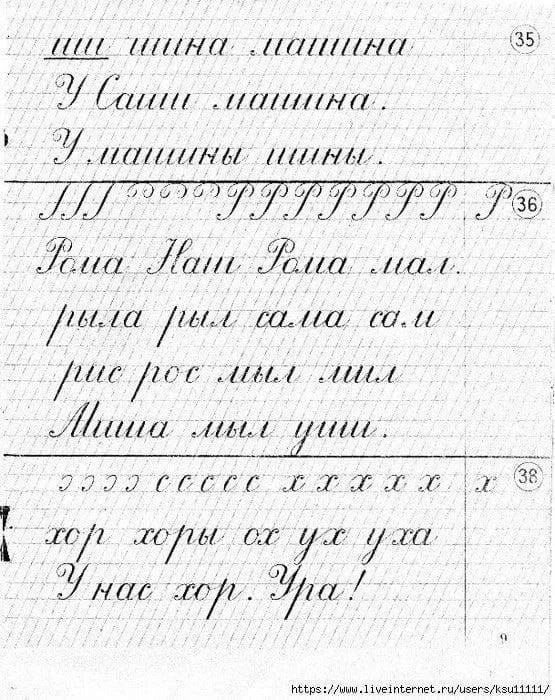 ши шина машина 35
У Саши машина.
У машины шины.
Р Р Р Р Р Р Р Р 36
Рома Наш Рома мал.
рыла рыл сама сам
рис рос мыл мил
Миша мыл уши.
с с с с с х х х х х х 38
хор хоры ох ух уха
У нас хор. Ура!
9
https://www.liveinternet.ru/users/ksu11111/